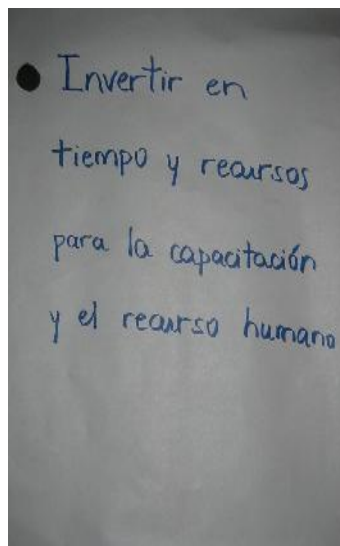 ● Invertir en
tiempo y recursos
para la capacitación
y el recurso humano